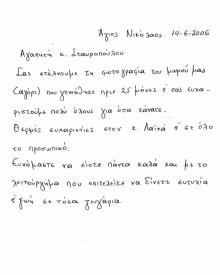 Άγιος Νικόλαος 14-6-2006
Αγαπητή κ. Σταυροπούλου
Σας στέλνουμε τη φωτογραφία του μωρού μας
(αγόρι) που γεννήθηκε πριν 2,5 μήνες & σας ευχα-
ριστούμε πολύ όλους για όσα κάνατε.
Θερμές ευχαριστίες στον κ. Λαϊνά & σε όλο
το προσωπικό.
Ευχόμαστε να είστε πάντα καλά και με το
λειτούργημα που επιτελείτε να δίνετε ευτυχία
& ζωή σε τόσα ζευγάρια.